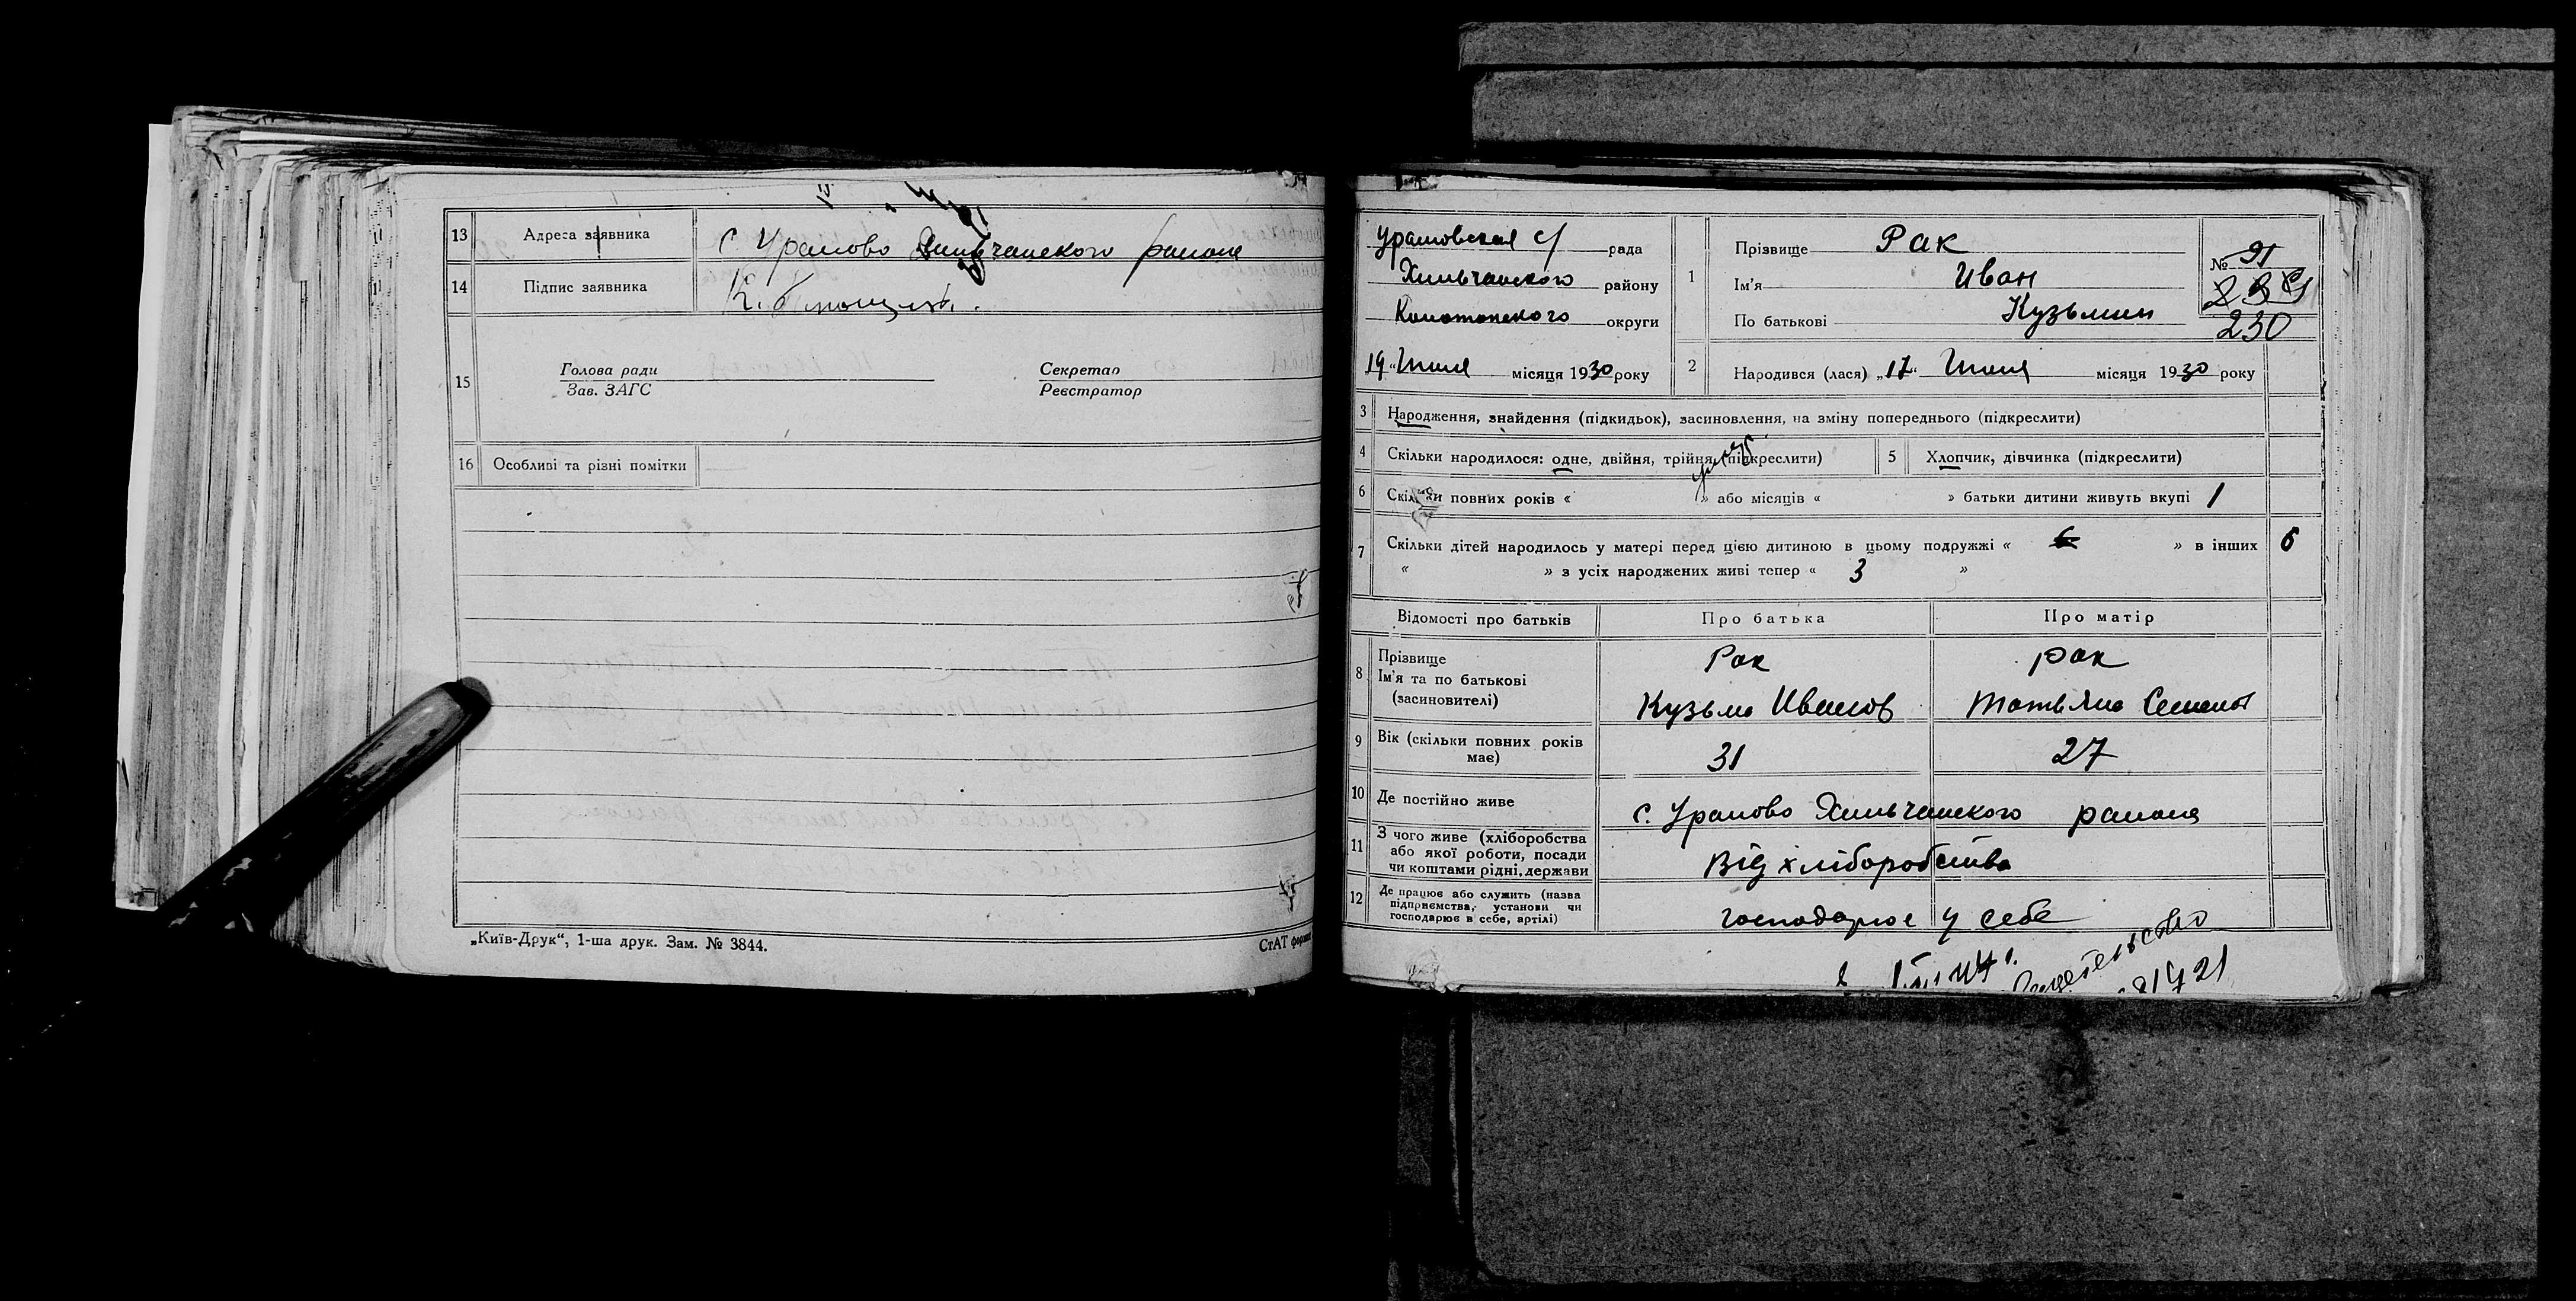 13 Адреса заявника С Уралово Хильчанского района
14 Підпис заявника К.
15 Голова ради Секретар
Зав. ЗАГС Реєстратор
16 Особливі та різні помітки
„Київ-Друк“, 1-ша друк. Зам. № 3844. СтАТ формат
Ураловская с/ рада
Хильчанского району
Конотопского округи
19 „ Июля місяця 1930 року
1 Прізвище Рак
Ім'я Иван
По батькові Кузьмин
№ 91
230
2 Народився (лася) „17“ Июля місяця 1930 року
3 Народження, знайдення (підкидьок), засиновлення, на зміну попереднього (підкреслити)
4 Скільки народилося: одне, двійня, трійня (підкреслити) 5 Хлопчик, дівчинка (підкреслити)
6 Скільки повних років « » або місяців « » батьки дитини живуть вкупі 1
7 Скільки дітей народилось у матері перед цією дитиною в цьому подружжі « 6 » в інших 6
« » з усіх народжених живі тепер « 3 »
Відомості про батьків Про батька Про матір
8 Прізвище Рак Рак
Ім'я та по батькові
(засиновителі) Кузьма Иванов Татьяна Семенов
9 Вік (скільки повних років має) 31 27
10 Де постійно живе с. Уралово Хильчанского района
11 З чого живе (хліборобства
або якої роботи, посади
чи коштами рідні, держави Від хліборобства
12 Де працює або служить (назва
підприємства, установи чи
господарює в себе, артілі) господарює у себе